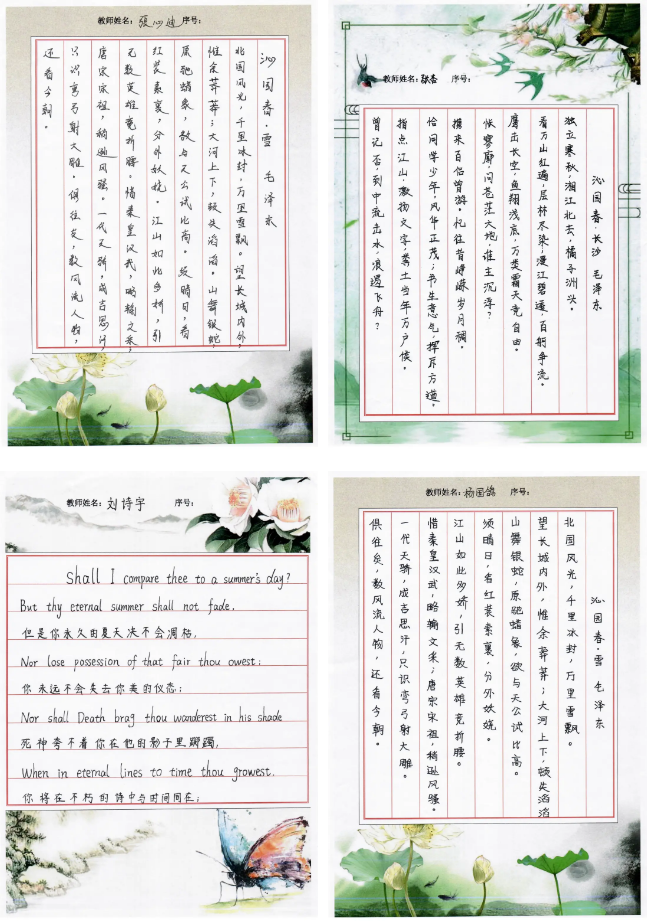 教师姓名：張沁迪 序号：
沁园春·雪 毛泽东
北国风光，千里冰封，万里雪飘。望长城内外，
惟余莽莽；大河上下，顿失滔滔。山舞银蛇，
原驰蜡象，欲与天公试比高。须晴日，看
红装素裹，分外妖娆。江山如此多娇，引
无数英雄竞折腰。惜秦皇汉武，略输文采，
唐宗宋祖，稍逊风骚。一代天骄，成吉思汗，
只识弯弓射大雕。俱往矣，数风流人物，
还看今朝。
教师姓名： 序号：
沁园春·长沙 毛泽东
独立寒秋，湘江北去，橘子洲头。
看万山红遍，层林尽染；漫江碧透，百舸争流。
鹰击长空，鱼翔浅底，万类霜天竞自由。
怅寥廓，问苍茫大地，谁主沉浮？
携来百侣曾游。忆往昔峥嵘岁月稠。
恰同学少年，风华正茂；书生意气，挥斥方遒。
指点江山，激扬文字，粪土当年万户侯。
曾记否，到中流击水，浪遏飞舟？
教师姓名：刘诗宇 序号：
Shall I compare thee to a summer's day?
But thy eternal summer shall not fade.
但是你永久的夏天决不会凋枯，
Nor lose possession of that fair thou owest;
你永远不会失去你美的仪态；
Nor shall Death brag thou wanderest in his shade
死神夸不着你在他的影子里踯躅，
When in eternal lines to time thou growest.
你将在不朽的诗中与时间同在；
教师姓名：杨国鸽 序号：
沁园春·雪 毛泽东
北国风光，千里冰封，万里雪飘。
望长城内外，惟余莽莽；大河上下，顿失滔滔
山舞银蛇，原驰蜡象，欲与天公试比高。
须晴日，看红装素裹，分外妖娆。
江山如此多娇，引无数英雄竞折腰。
惜秦皇汉武，略输文采，唐宗宋祖，稍逊风骚。
一代天骄，成吉思汗，只识弯弓射大雕。
俱往矣，数风流人物，还看今朝。